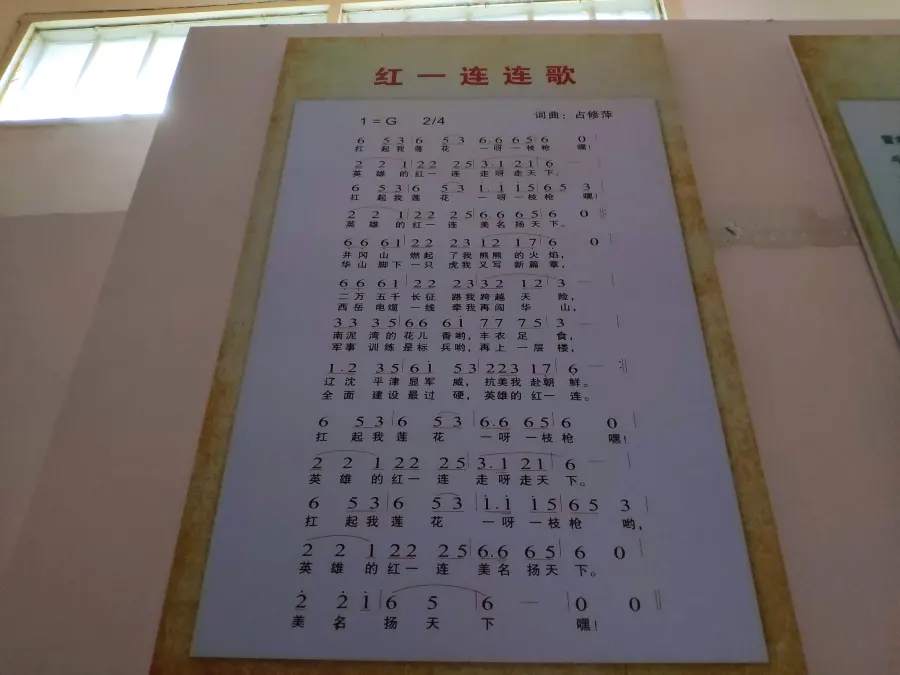 红一连连歌
1=G 2/4 词曲：占修萍
6 5 3|6 5 3|6.6 6 5|6 0|
扛起我莲花一呀一枝枪嘿！
2 2 1|2 2 2 5|3.1 2 1|6 —|
英雄的红一连走呀走天下。
6 5 3|6 5 3|1.1 1 5|6 5 3|
扛起我莲花一呀一枝枪嘿！
2 2 1|2 2 2 5|6 6 6 5|6 0
英雄的红一连美名扬天下。
6 6 6 1|2 2 2 3|1 2 1 7|6 0|
井冈山燃起了我熊熊的火焰，
华山脚下一只虎我又写新篇章，
6 6 6 1|2 2 2 3|3 2 1 2|3 —|
二万五千长征路我跨越天险，
西岳电缆一线牵我再闯华山，
3 3 3 5|6 6 6 1|7 7 7 5|3 —|
南泥湾的花儿香哟，丰衣足食，
军事训练是标兵哟，再上一层楼，
1.2 3 5|6 1 5 3|2 2 3 1 7|6 — :‖
辽沈平津显军威，抗美我赴朝鲜。
全面建设最过硬，英雄的红一连。
6 5 3|6 5 3|6.6 6 5|6 0|
扛起我莲花一呀一枝枪嘿！
2 2 1|2 2 2 5|3.1 2 1|6 —|
英雄的红一连走呀走天下。
6 5 3|6 5 3|1.1 1 5|6 5 3|
扛起我莲花一呀一枝枪哟，
2 2 1|2 2 2 5|6.6 6 5|6 0|
英雄的红一连美名扬天下。
2 2 1|6 5 6 —|0 0‖
美名扬天下嘿！